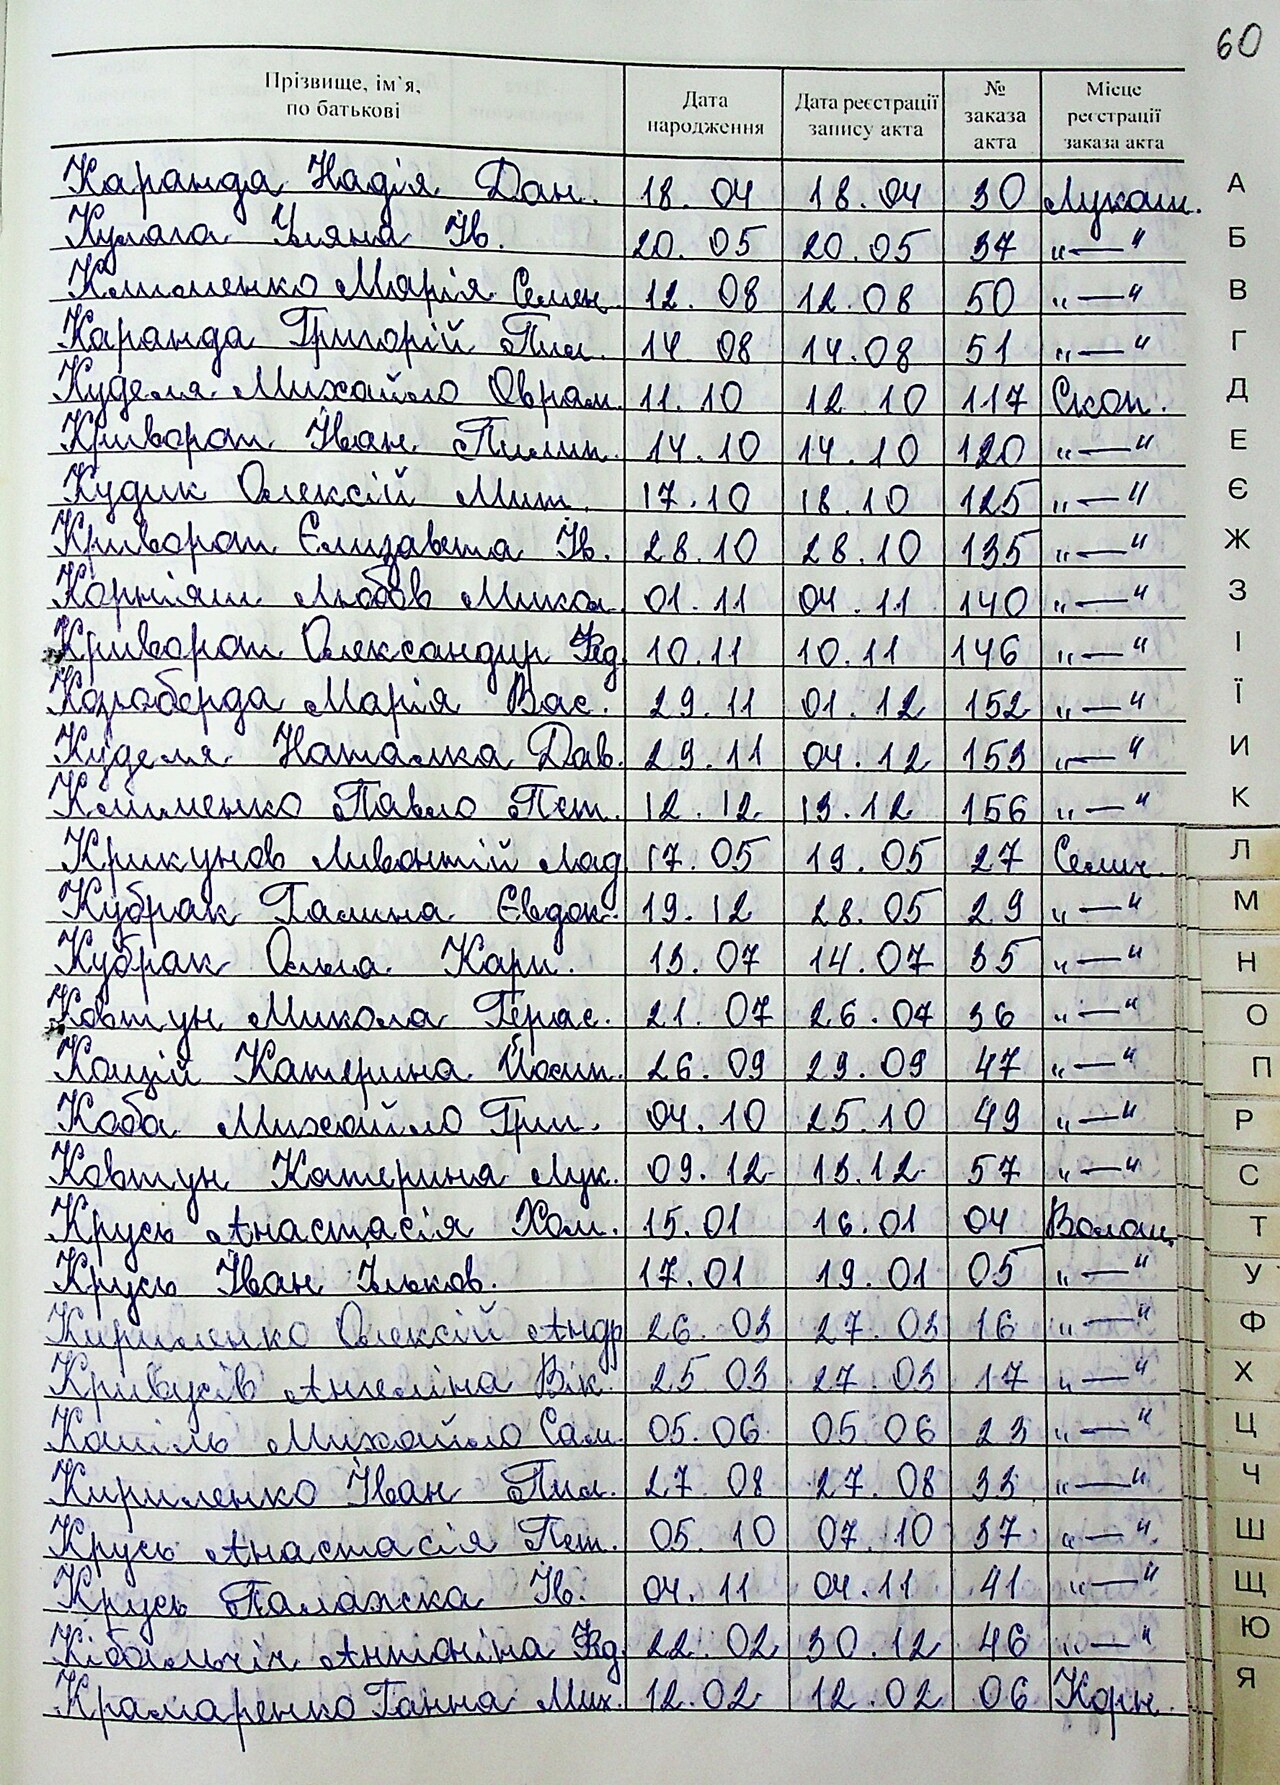 60
Прізвище, ім'я, по батькові Дата народження Дата реєстрації запису акта № заказа акта Місце реєстрації заказа акта
Каранда Надія Дан. 18.04 18.04 30 Лукаш.
Кулага Уляна Ів. 20.05 20.05 37 „—"
Клименко Марія Семен. 12.08 12.08 50 „—"
Каранда Григорій Пил. 14 08 14.08 51 „—"
Куделя Михайло Оврам. 11.10 12.10 117 Скоп.
Криворот Іван Пилип. 14.10 14.10 120 „—"
Кудик Олексій Мит. 17.10 18.10 125 „—"
Криворот Єлизавета Ів. 28.10 28.10 135 „—"
Корніяш Любов Микол. 01.11 04.11 140 „—"
Криворот Олександр Фед. 10.11 10.11 146 „—"
Короберда Марія Вас. 29.11 01.12 152 „—"
Куделя Наталка Дав. 29.11 04.12 153 „—"
Клименко Павло Пет. 12.12 13.12 156 „—"
Крикунов Ливонтій Лад. 17.05 19.05 27 Селич.
Кубрак Галина Євдок. 19.12 28.05 29 „—"
Кубрак Ольга Карп. 13.07 14.07 35 „—"
Ковтун Микола Герас. 21.07 26.07 36 „—"
Коцій Катерина Йосип. 26.09 29.09 47 „—"
Коба Михайло Григ. 04.10 25.10 49 „—"
Ковтун Катерина Лук. 09.12 13.12 57 „—"
Крусь Анастасія Хом. 15.01 16.01 04 Волош.
Крусь Іван Ільков. 17.01 19.01 05 „—"
Кириленко Олексій Андр. 26.03 27.03 16 „—"
Кривусів Ангеліна Вік. 25 03 27.03 17 „—"
Кошіль Михайло Сам. 05.06 05.06 23 „—"
Кириленко Іван Пил. 27 08 27.08 33 „—"
Крусь Анастасія Пет. 05.10 07.10 37 „—"
Крусь Палажка Ів. 04.11 04.11 41 „—"
Кібальчіч Антоніна Фед. 22.02 30.12 46 „—"
Крамаренко Ганна Мих. 12.02 12.02 06 Корн.
А
Б
В
Г
Д
Е
Є
Ж
З
І
Ї
И
К
Л
М
Н
О
П
Р
С
Т
У
Ф
Х
Ц
Ч
Ш
Щ
Ю
Я